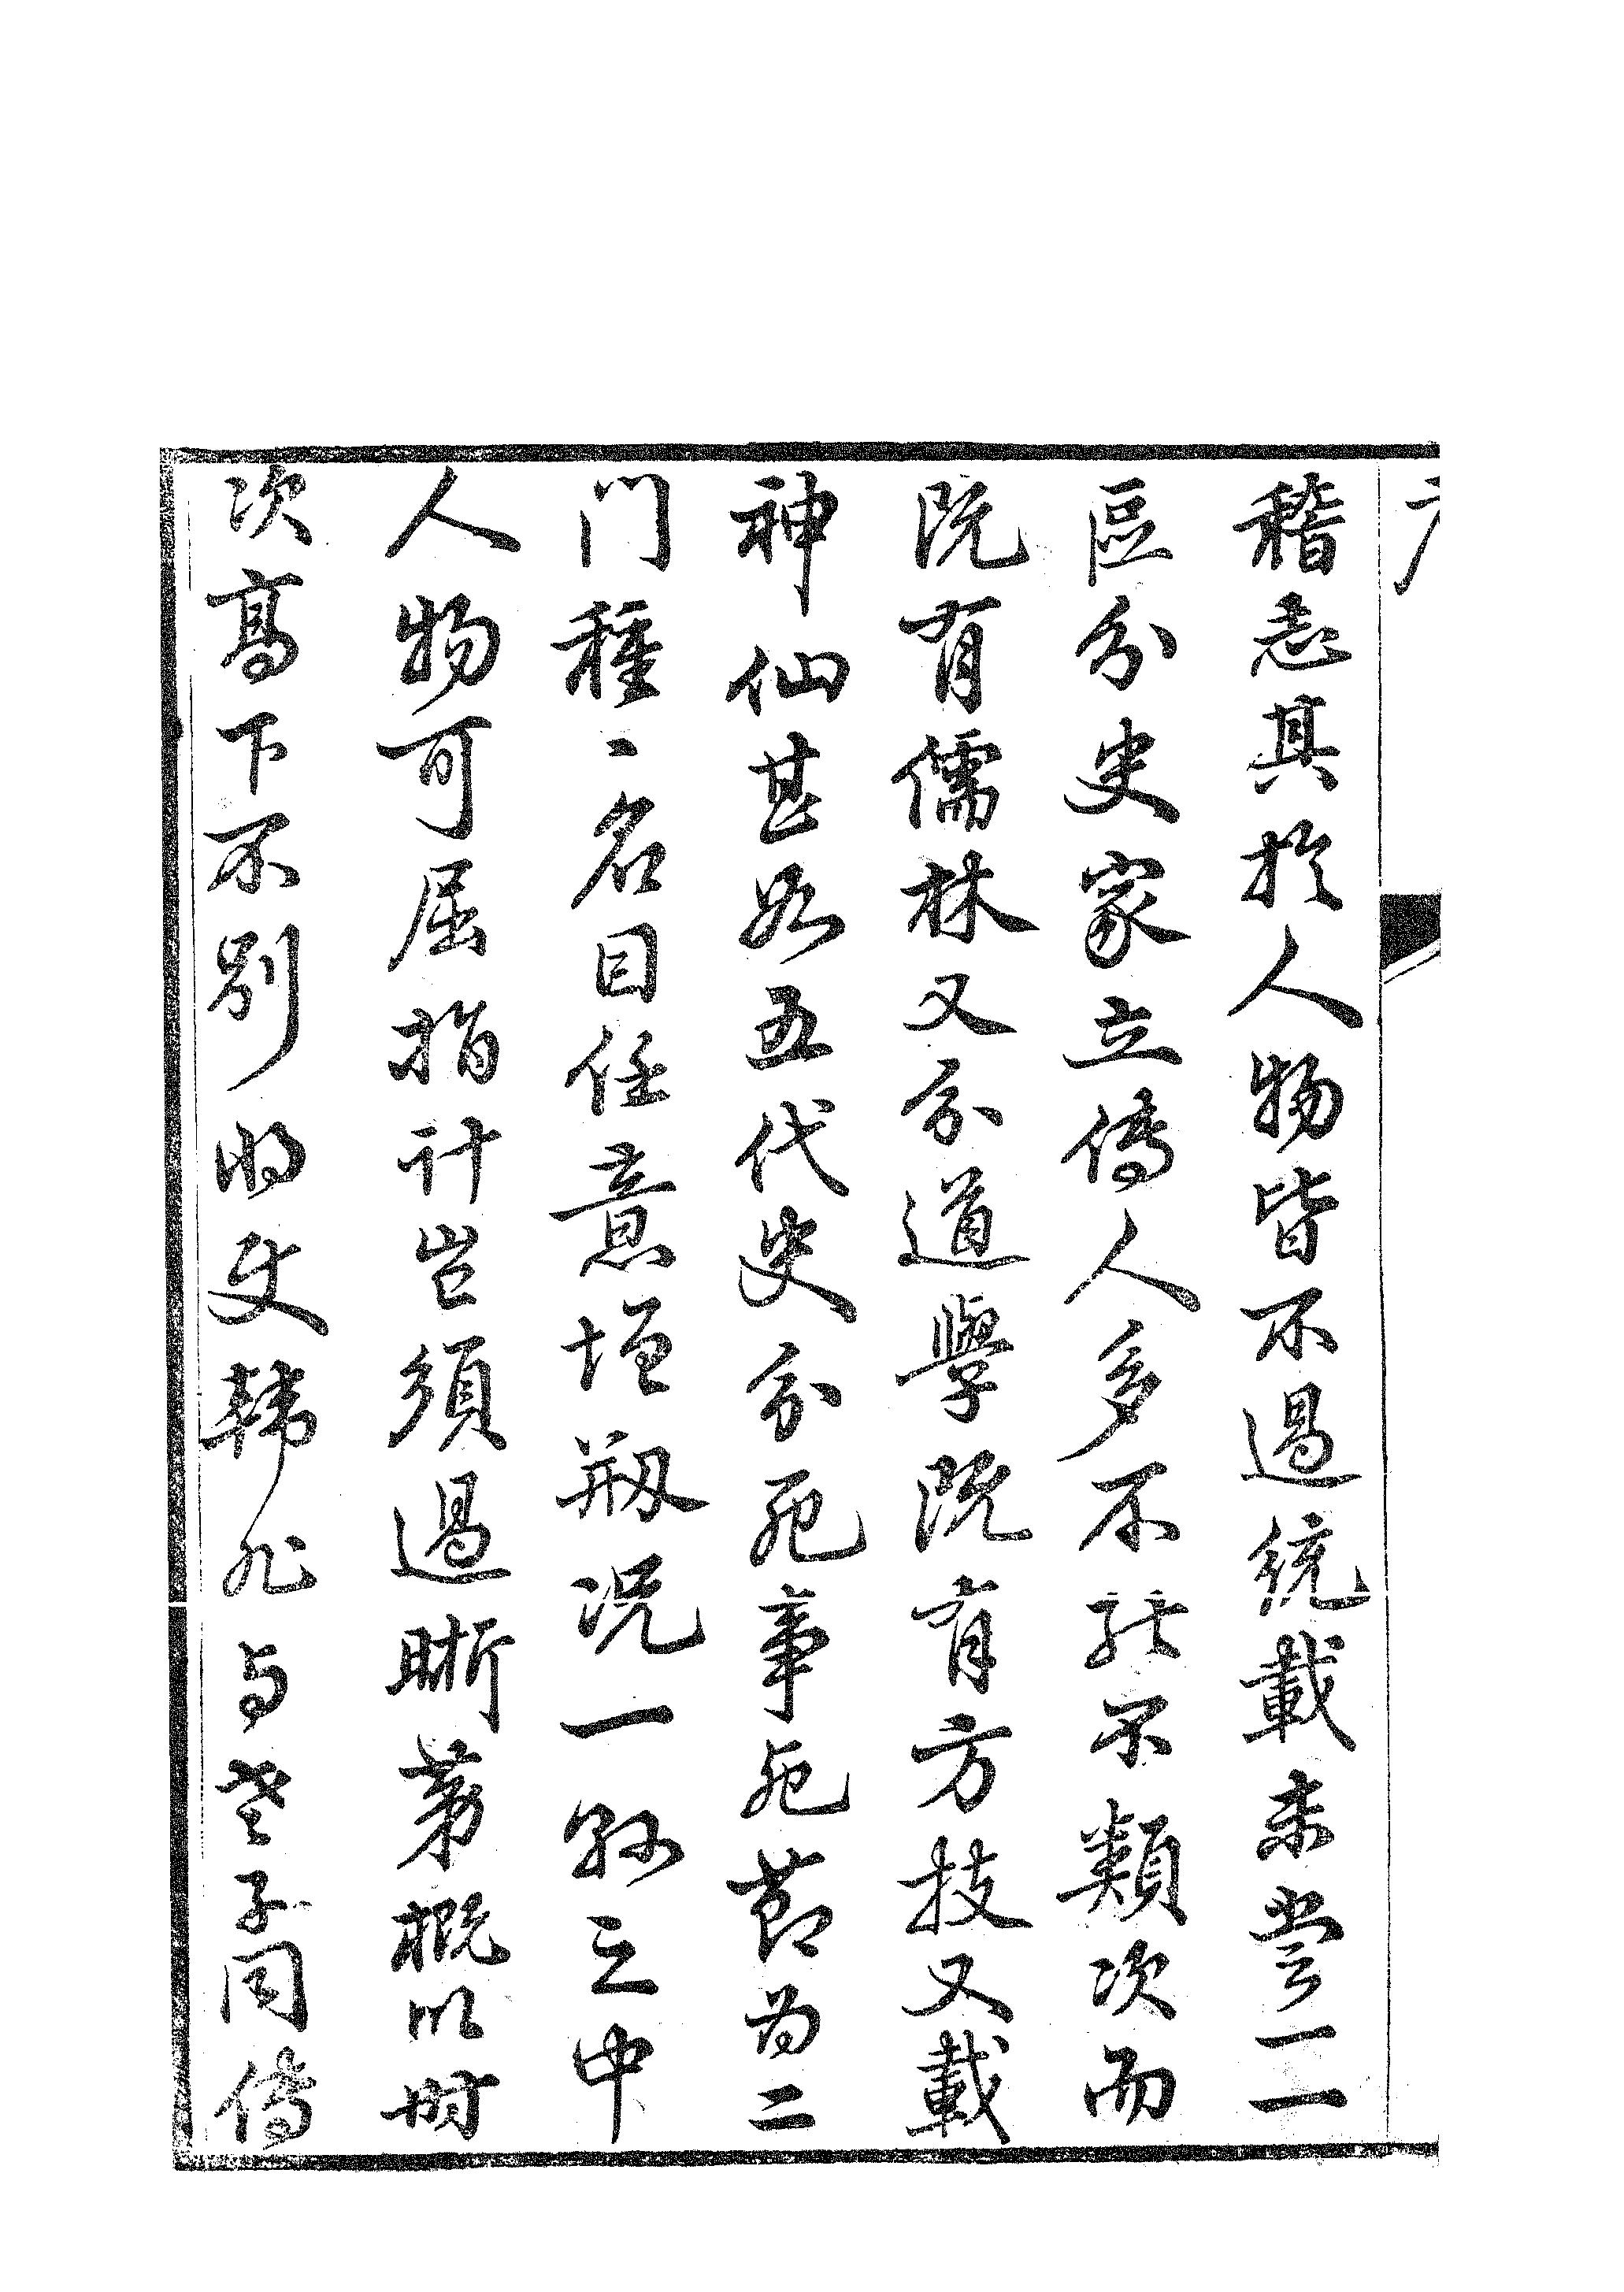 稽志其於人物皆不過統載未嘗一一
區分史家立傳人多不能不類次而
既有儒林又分道學既有方技又載
神仙甚如五代史分死事死節為二
門種〻名目任意增剏況一縣之中
人物可屈指計豈須過晰第概以時
次高下不別將史韓非與老子同傳